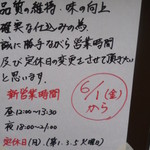 品質の維持・味の向上
確実な仕込みの為。
誠に勝手ながら営業時間
及び定休日の変更をさせて頂きたい
と思います。
新営業時間
昼12:00〜13:30
夜18:00〜21:00
定休日(月)(第1.3.5火曜日)
6/1(金)
から